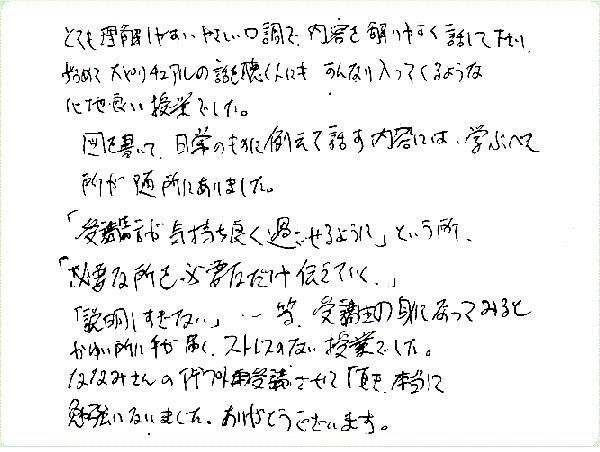 とても理解しやすい、やさしい口調で、内容を解りやすく話して下さり、
始めてスピリチュアルの話を聴く人にも すんなり入ってくるような
心地良い授業でした。
図を書いて、日常のものに例えて話す内容には、学ぶべき
所が随所にありました。
「受講者が気持ち良く過ごせるように」という所、
「必要な所を必要なだけ伝えていく。」
「説明しすぎない」…等、受講生の身になってみると
かゆい所に手が届く、ストレスのない授業でした。
ななみさんの 受講させて頂き、本当に
勉強になりました。ありがとうございます。